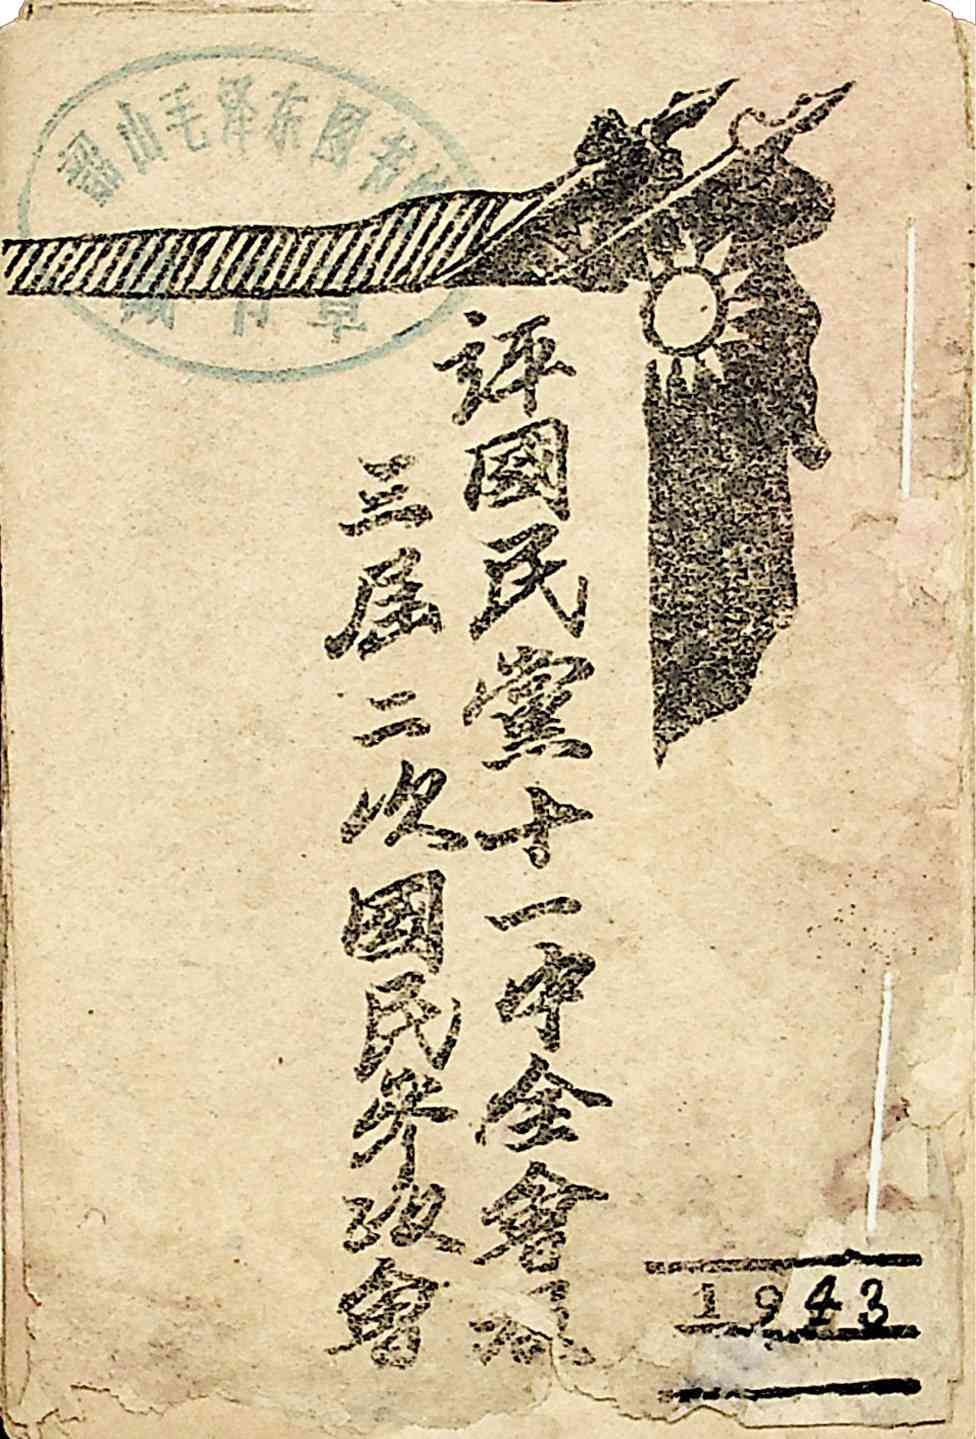 评國民黨十一中全會和
三届二次國民参政會
1943
韶山毛泽东图书馆
藏书章